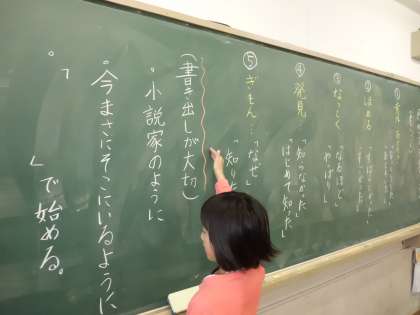 ②ほめる
③なっとく
「なるほど」
「やっぱり」
④発見
「知らなかった」
「はじめて知った」
⑤ぎもん…
「なぜ」
「知り
（書き出しが大切）
・小説家のように
・今まさにそこにいるように
・「
」で始める。